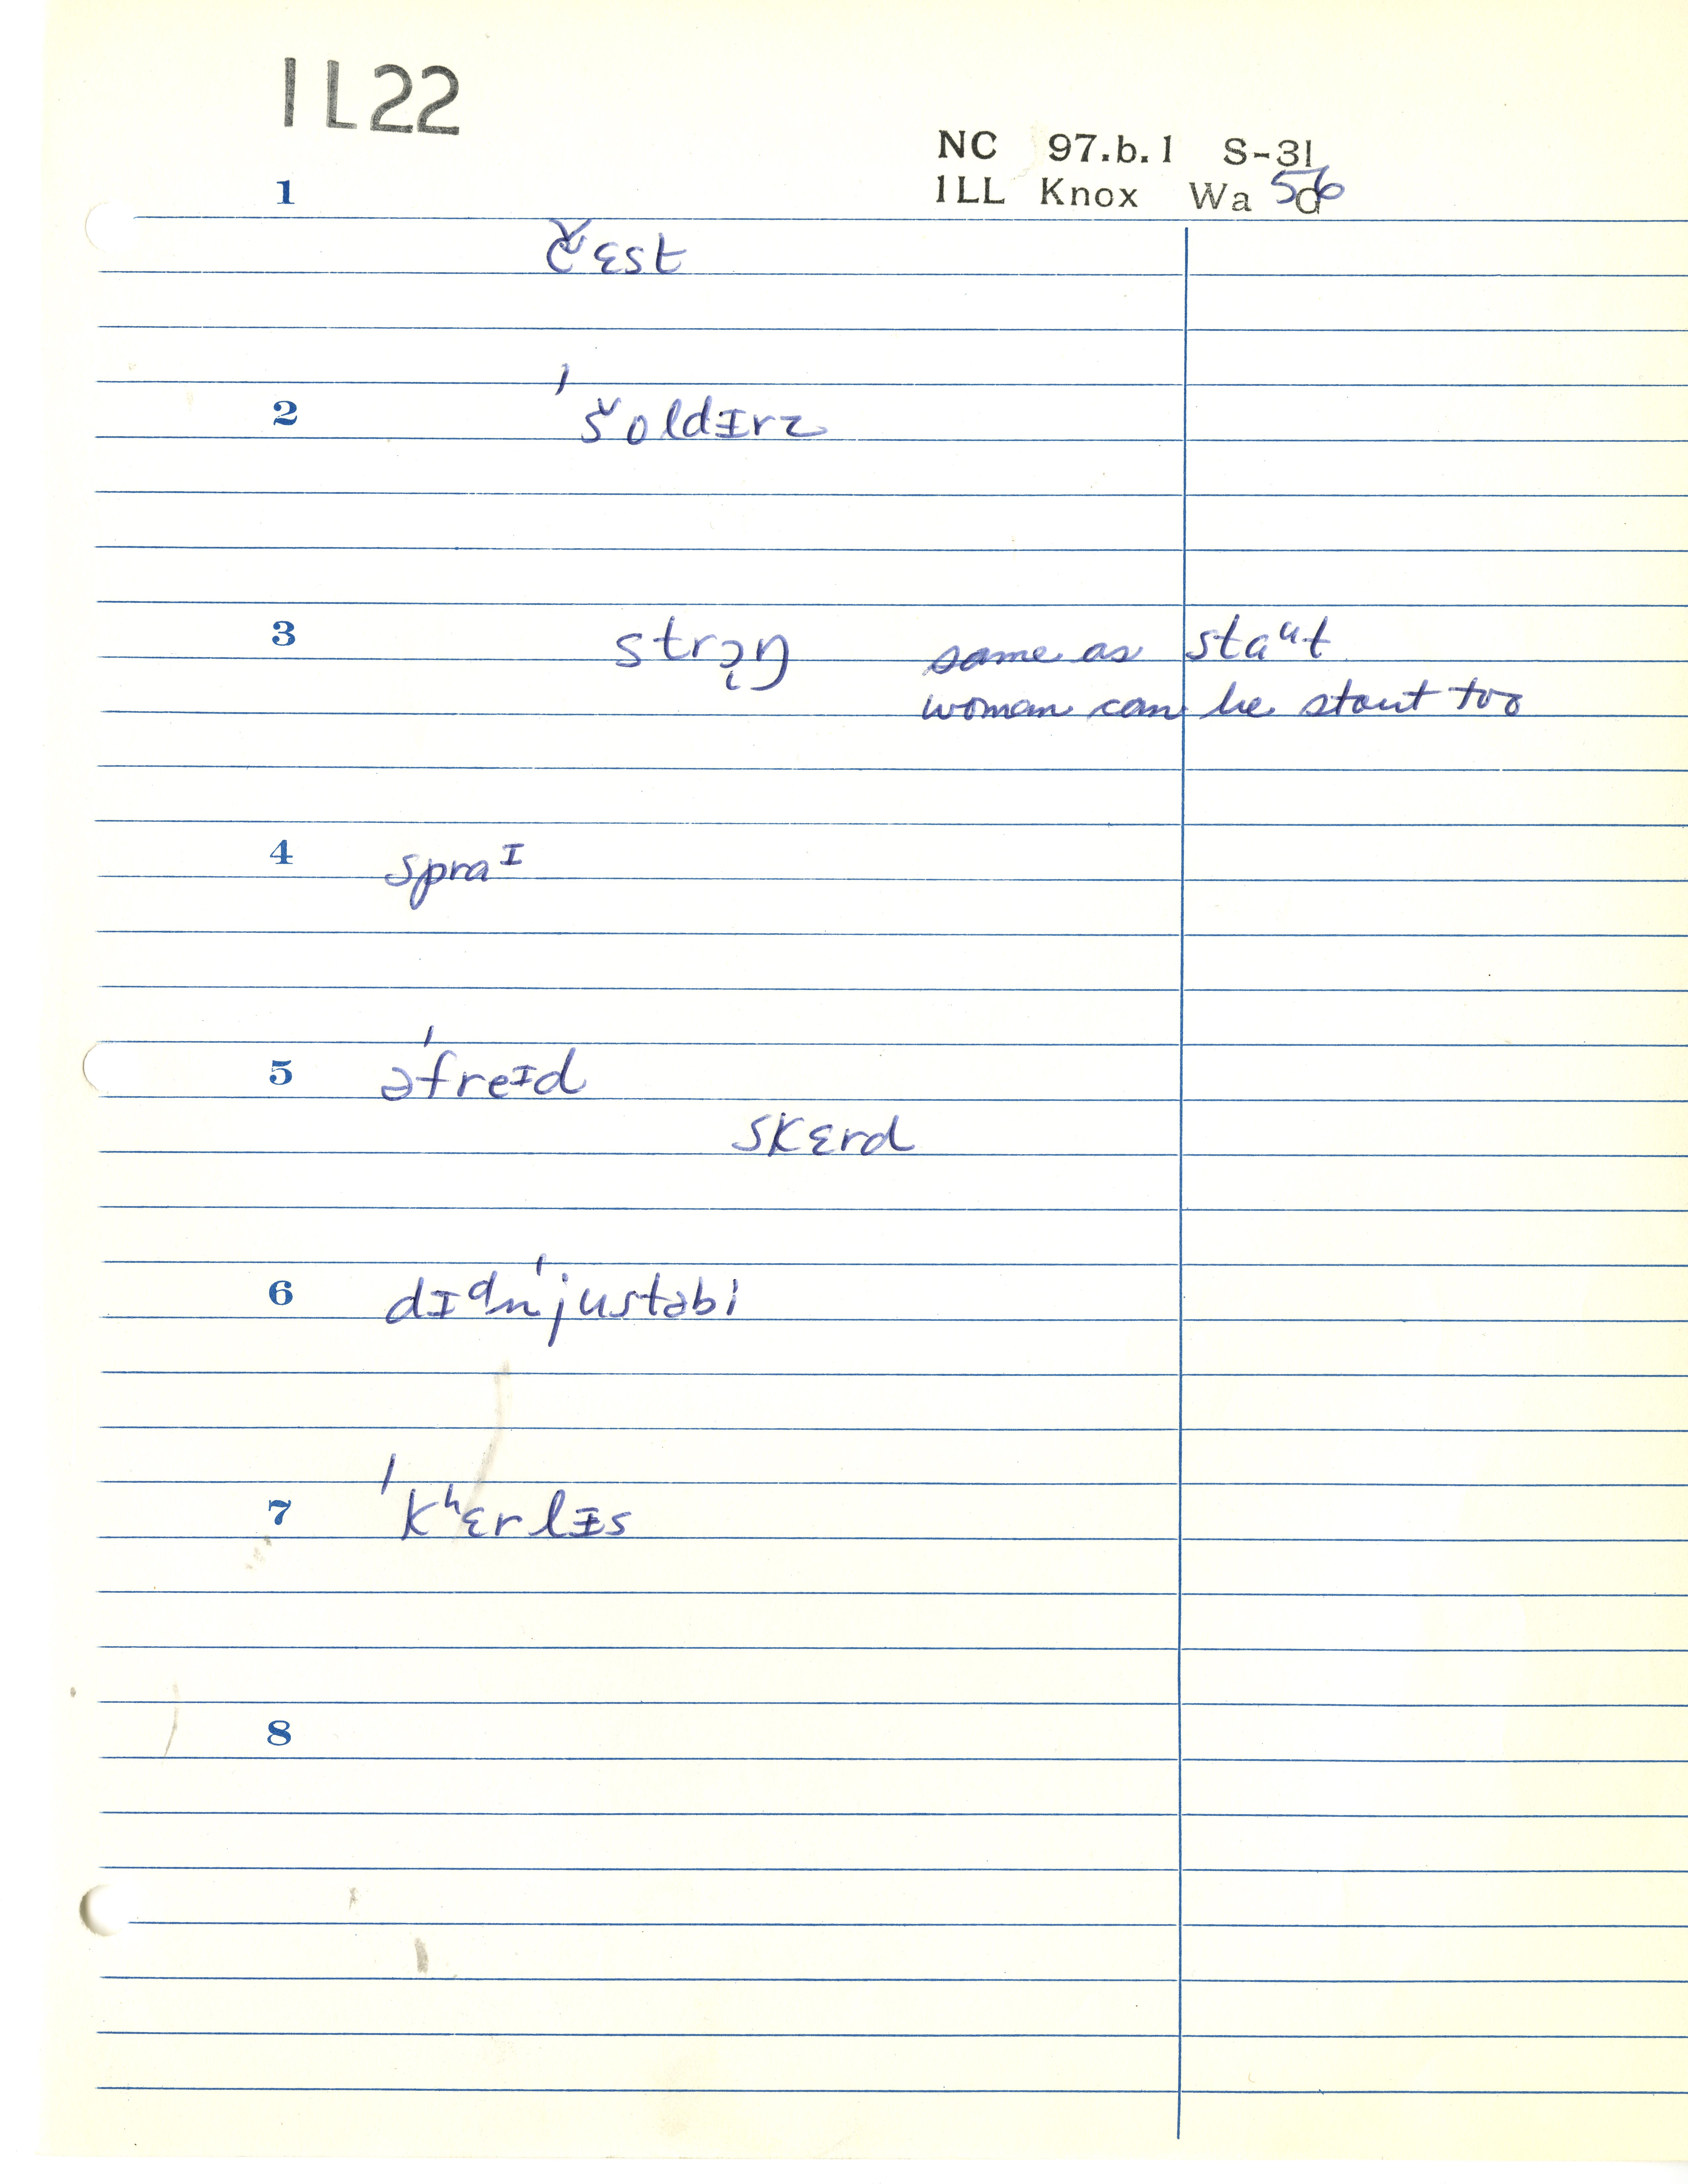 IL22
NC 97.b.1 S-31
ILL Knox Wa 56
1
čɛst
2
ˈšoldɪrz
3 strɔ̨ŋ same as staᵘt
woman can be stout too
4 spraᶦ
5 əˈfreɪd
skɛrd
6 dɪᵈnˈjustəbi
7 ˈkʰɛrlɪs
8